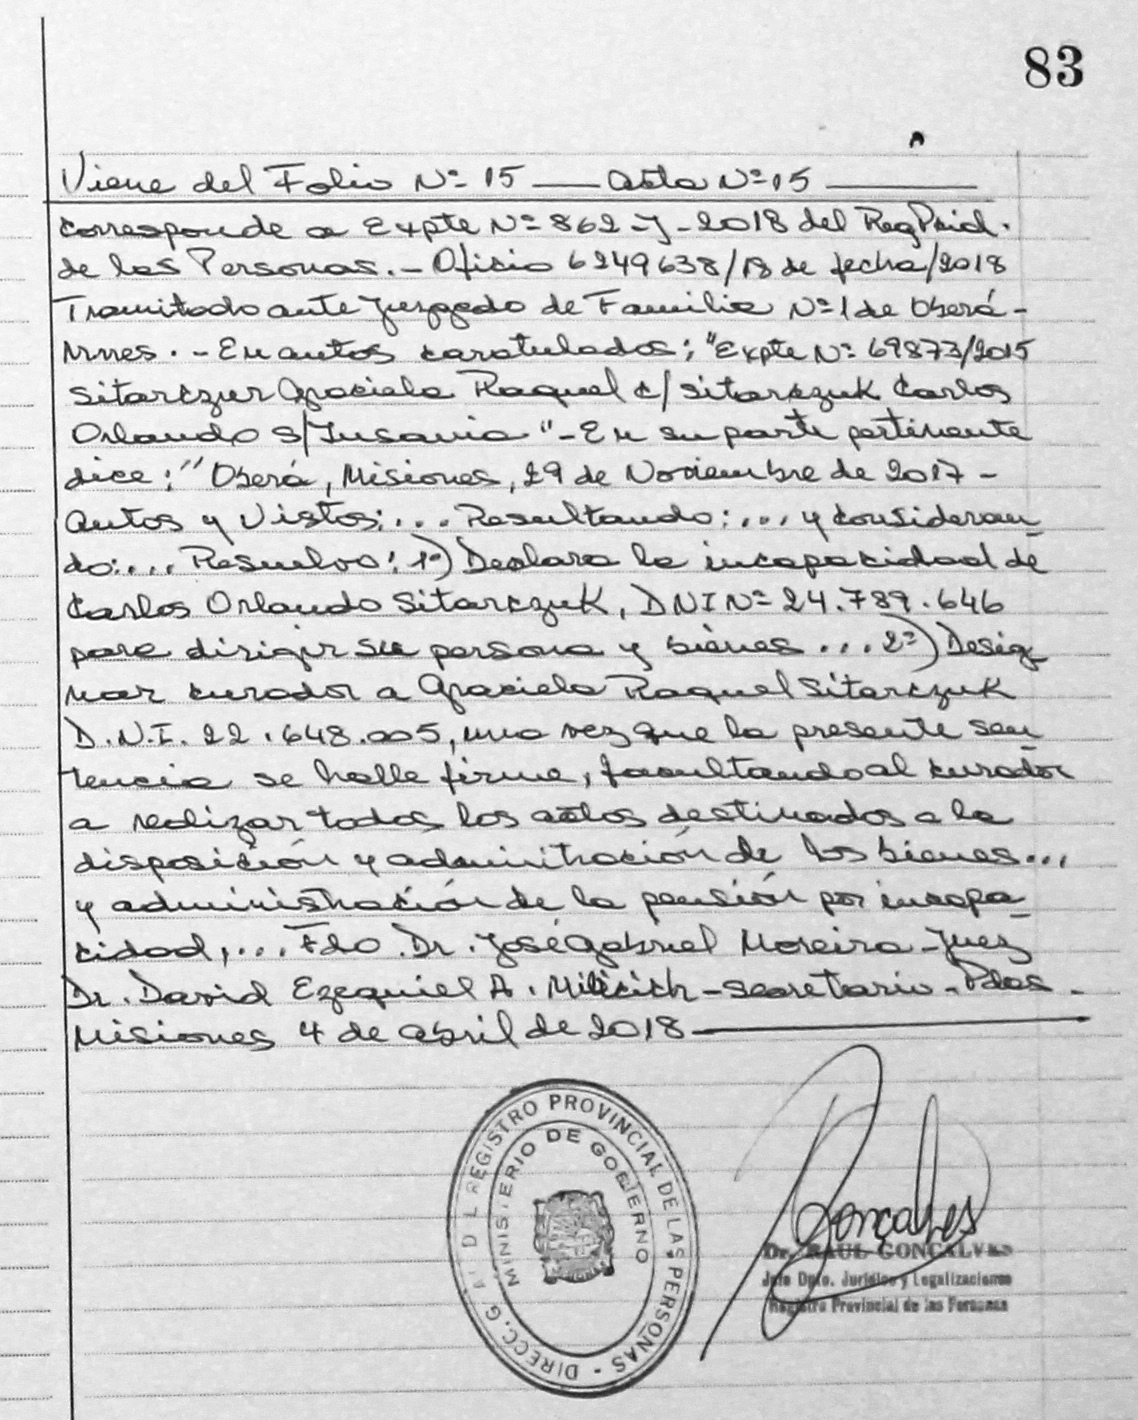 83
Viene del Folio Nº 15 — Acta Nº 15 —
corresponde a Expte Nº 862-J-2018 del Reg Pcial.
de las Personas.- Oficio 6249638/18 de fecha/2018
Tramitado ante Juzgado de Familia Nº 1 de Oberá-
Mnes.- En autos caratulados: "Expte Nº 69873/2015
Sitarczur Graciela Raquel c/ Sitarczuk Carlos
Orlando s/Insania"- En su parte pertinente
dice: "Oberá, Misiones, 29 de Noviembre de 2017-
Autos y Vistos:... Resultando:... y consideran_
do:... Resuelvo: 1º) Declara la incapacidad de
Carlos Orlando Sitarczuk, DNI Nº 24.789.646
para dirigir su persona y bienes ... 2º) Desig_
nar curador a Graciela Raquel Sitarczuk
D.N.I. 22.648.005, una vez que la presente sen_
tencia se halle firme, facultando al curador
a realizar todos los actos destinados a la
disposición y adminitración de los bienes...
y administración de la pensión por incapa_
cidad,... Fdo. Dr. José Gabriel Moreira - Juez
Dr. David Ezequiel A. Milicich - Secretario - Pdas -
Misiones 4 de abril de 2018 —
DIRECC. G RAL D L REGISTRO PROVINCIAL DE LAS PERSONAS -
MINISTERIO DE GOBIERNO
Gonçalves
Dr. RAUL GONCALVES
Jefe Dpto. Jurídico y Legalizaciones
Registro Provincial de las Personas